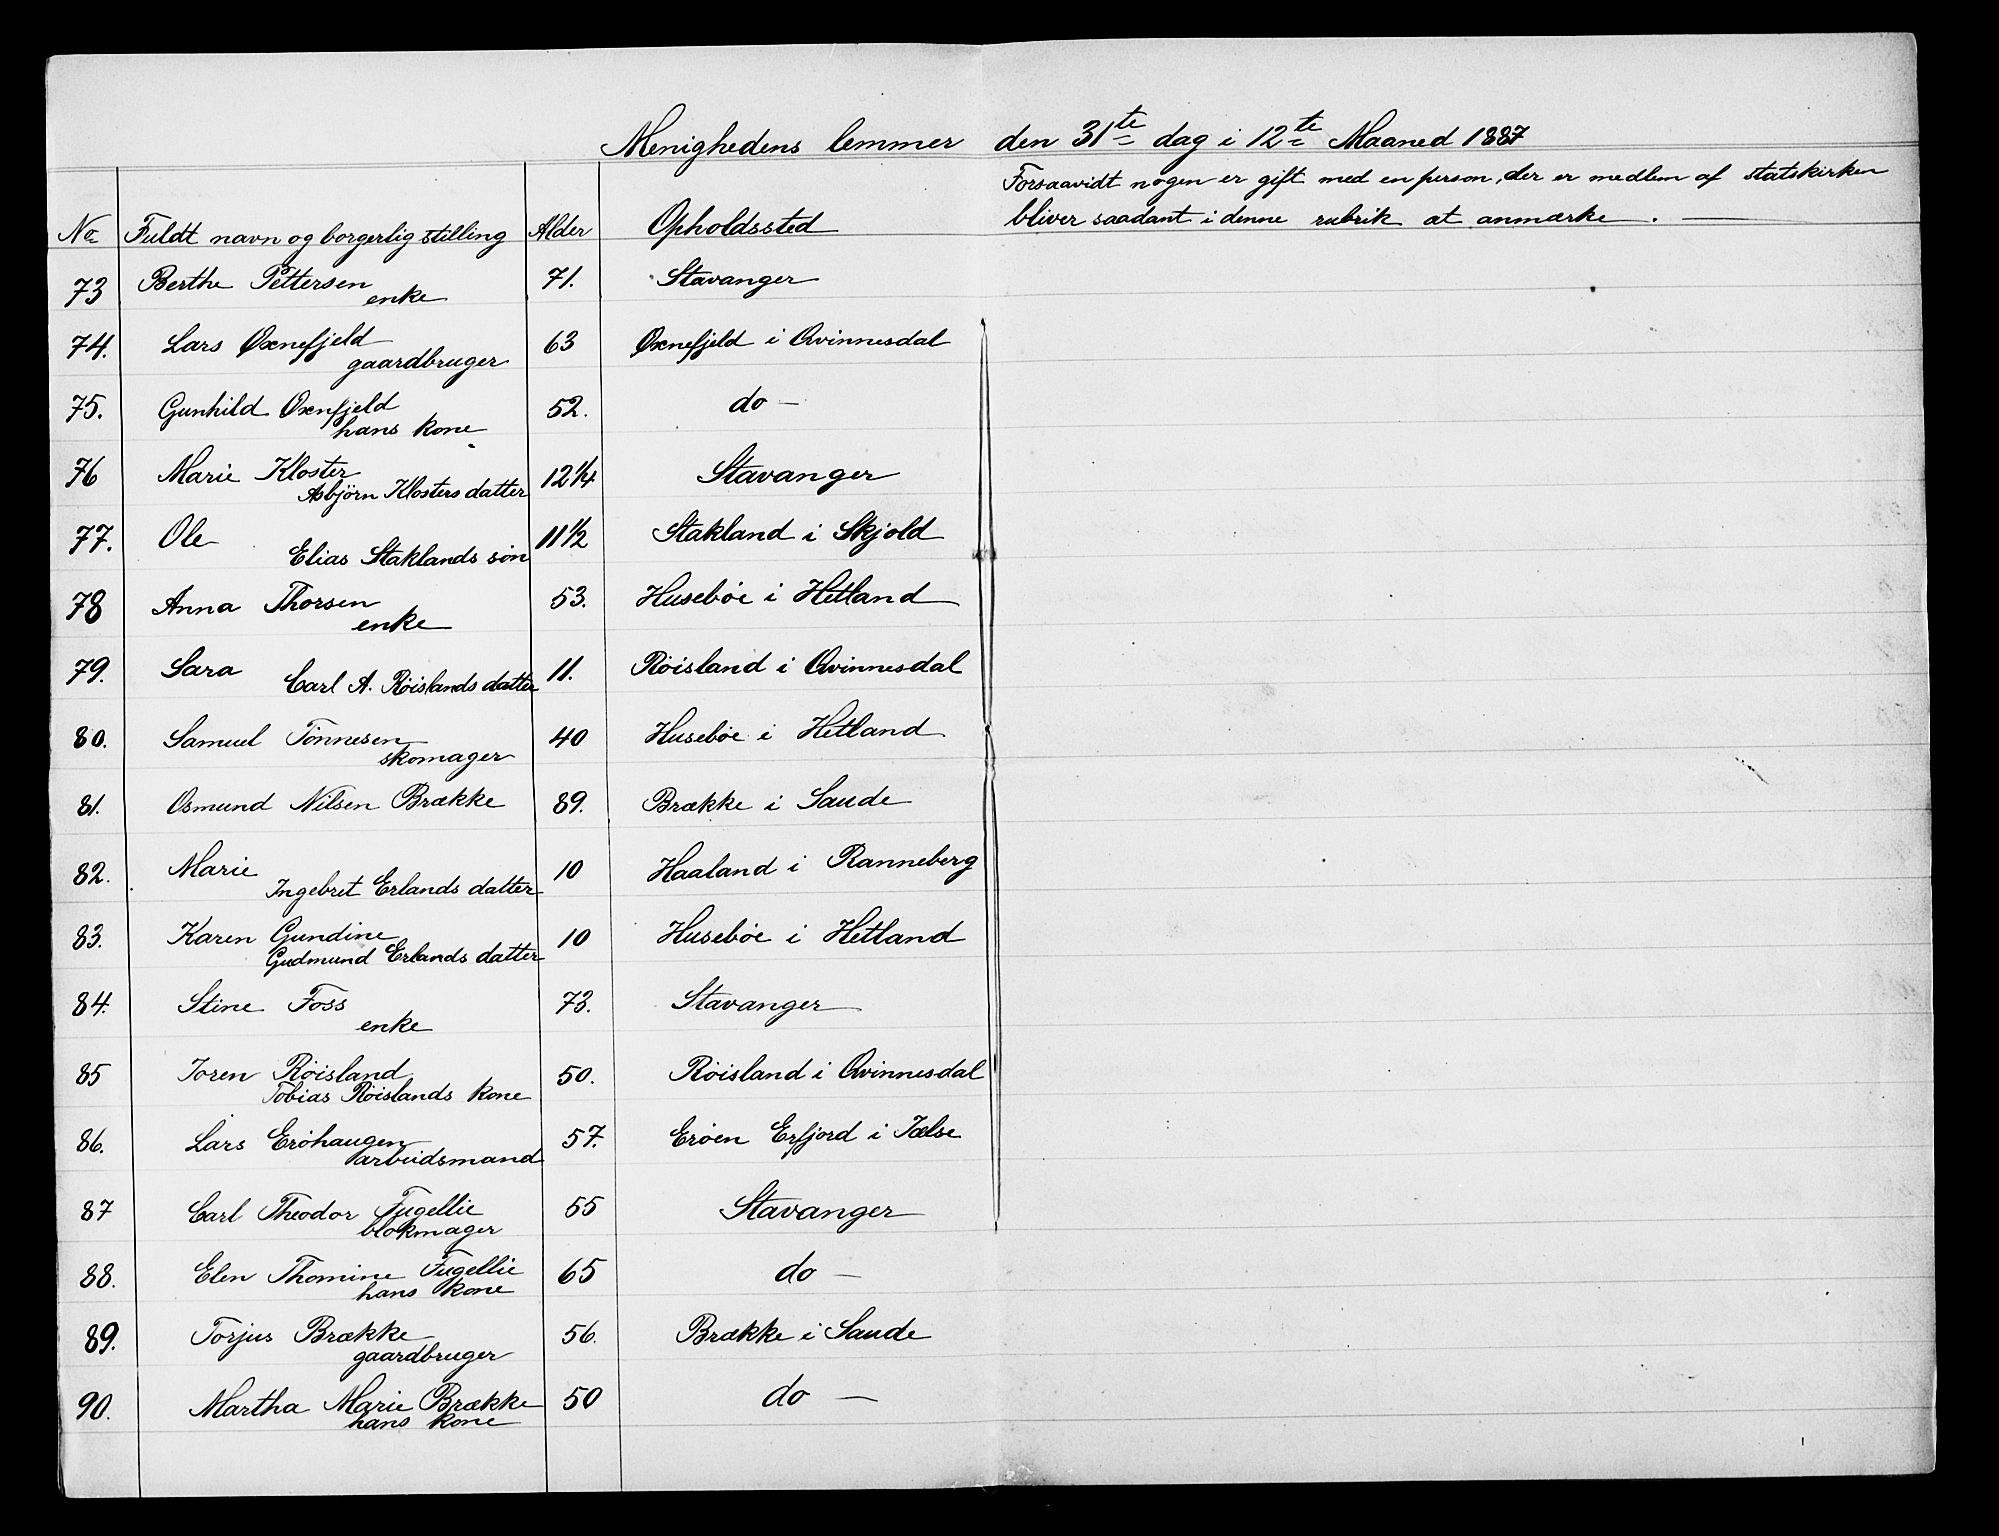 Menighedens lemmer den 31te dag i 12te Maaned 1887
No Fuldt navn og borgerlig stilling Alder Opholdssted
Forsaavidt nogen er gift med en person, der er medlem af statskirken
bliver saadant i denne rubrik at anmærke.
73 Berthe Pettersen 71. Stavanger
enke
74. Lars Oxnefjeld 63 Oxnefjeld i Qvinnesdal
gaardbruger
75. Gunhild Oxnfjeld 52. do -
hans kone
76 Marie Kloster 12 1/4 Stavanger
Asbjörn Klosters datter
77. Ole 11 1/2 Stakland i Skjold
Elias Staklands søn
78 Anna Thorsen 53. Husebøe i Hetland
enke
79. Sara 11. Røisland i Qvinnesdal
Carl A. Røislands datter
80. Samuel Tönnesen 40 Husebøe i Hetland
skomager
81. Osmund Nilsen Brække 89. Brække i Saude
82. Marie 10 Haaland i Ranneberg
Ingebret Erlands datter
83. Karen Gundine 10 Husebøe i Hetland
Gudmund Erlands datter
84. Stine Foss 73. Stavanger
enke
85 Joren Røisland 50. Røisland i Qvinnesdal
Tobias Røislands kone
86. Lars Erøhaugen 57. Erøen Erfjord i Jælse
arbeidsmand
87 Carl Theodor Fugellie 55 Stavanger
blokmager
88. Elen Thomine Fugellie 65 do -
hans kone
89. Torjus Brække 56. Brække i Saude
gaardbruger
90. Martha Marie Brække 50 do -
hans kone